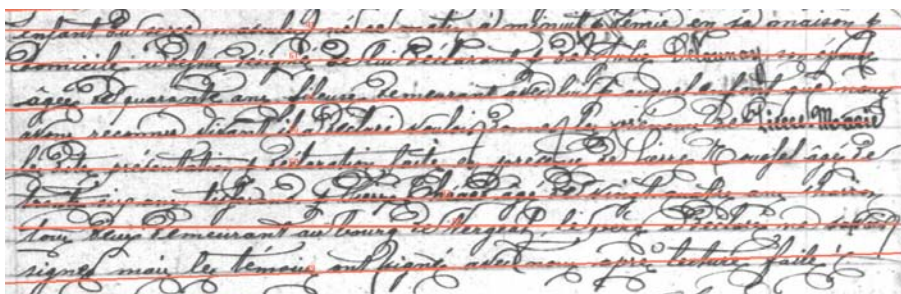 enfant du sexe masculin né ce matin à minuit & demie en sa maison &
domicile ci dessus désigné de lui déclarant & de Julie Delaunay son épouse
âgée de quarante ans fileuse demeurant avec lui & auquel enfant que nous
avons reconnu vivant il a déclaré vouloir donner le prénom de Pierre Marie
lesdites présentation & déclaration faite en présence de Pierre âgé de
trente six ans & de Pierre âgé de vingt quatre ans
tous deux demeurant au bourg de le père a déclaré ne savoir
signer mais les témoins ont signé avec nous après lecture faite